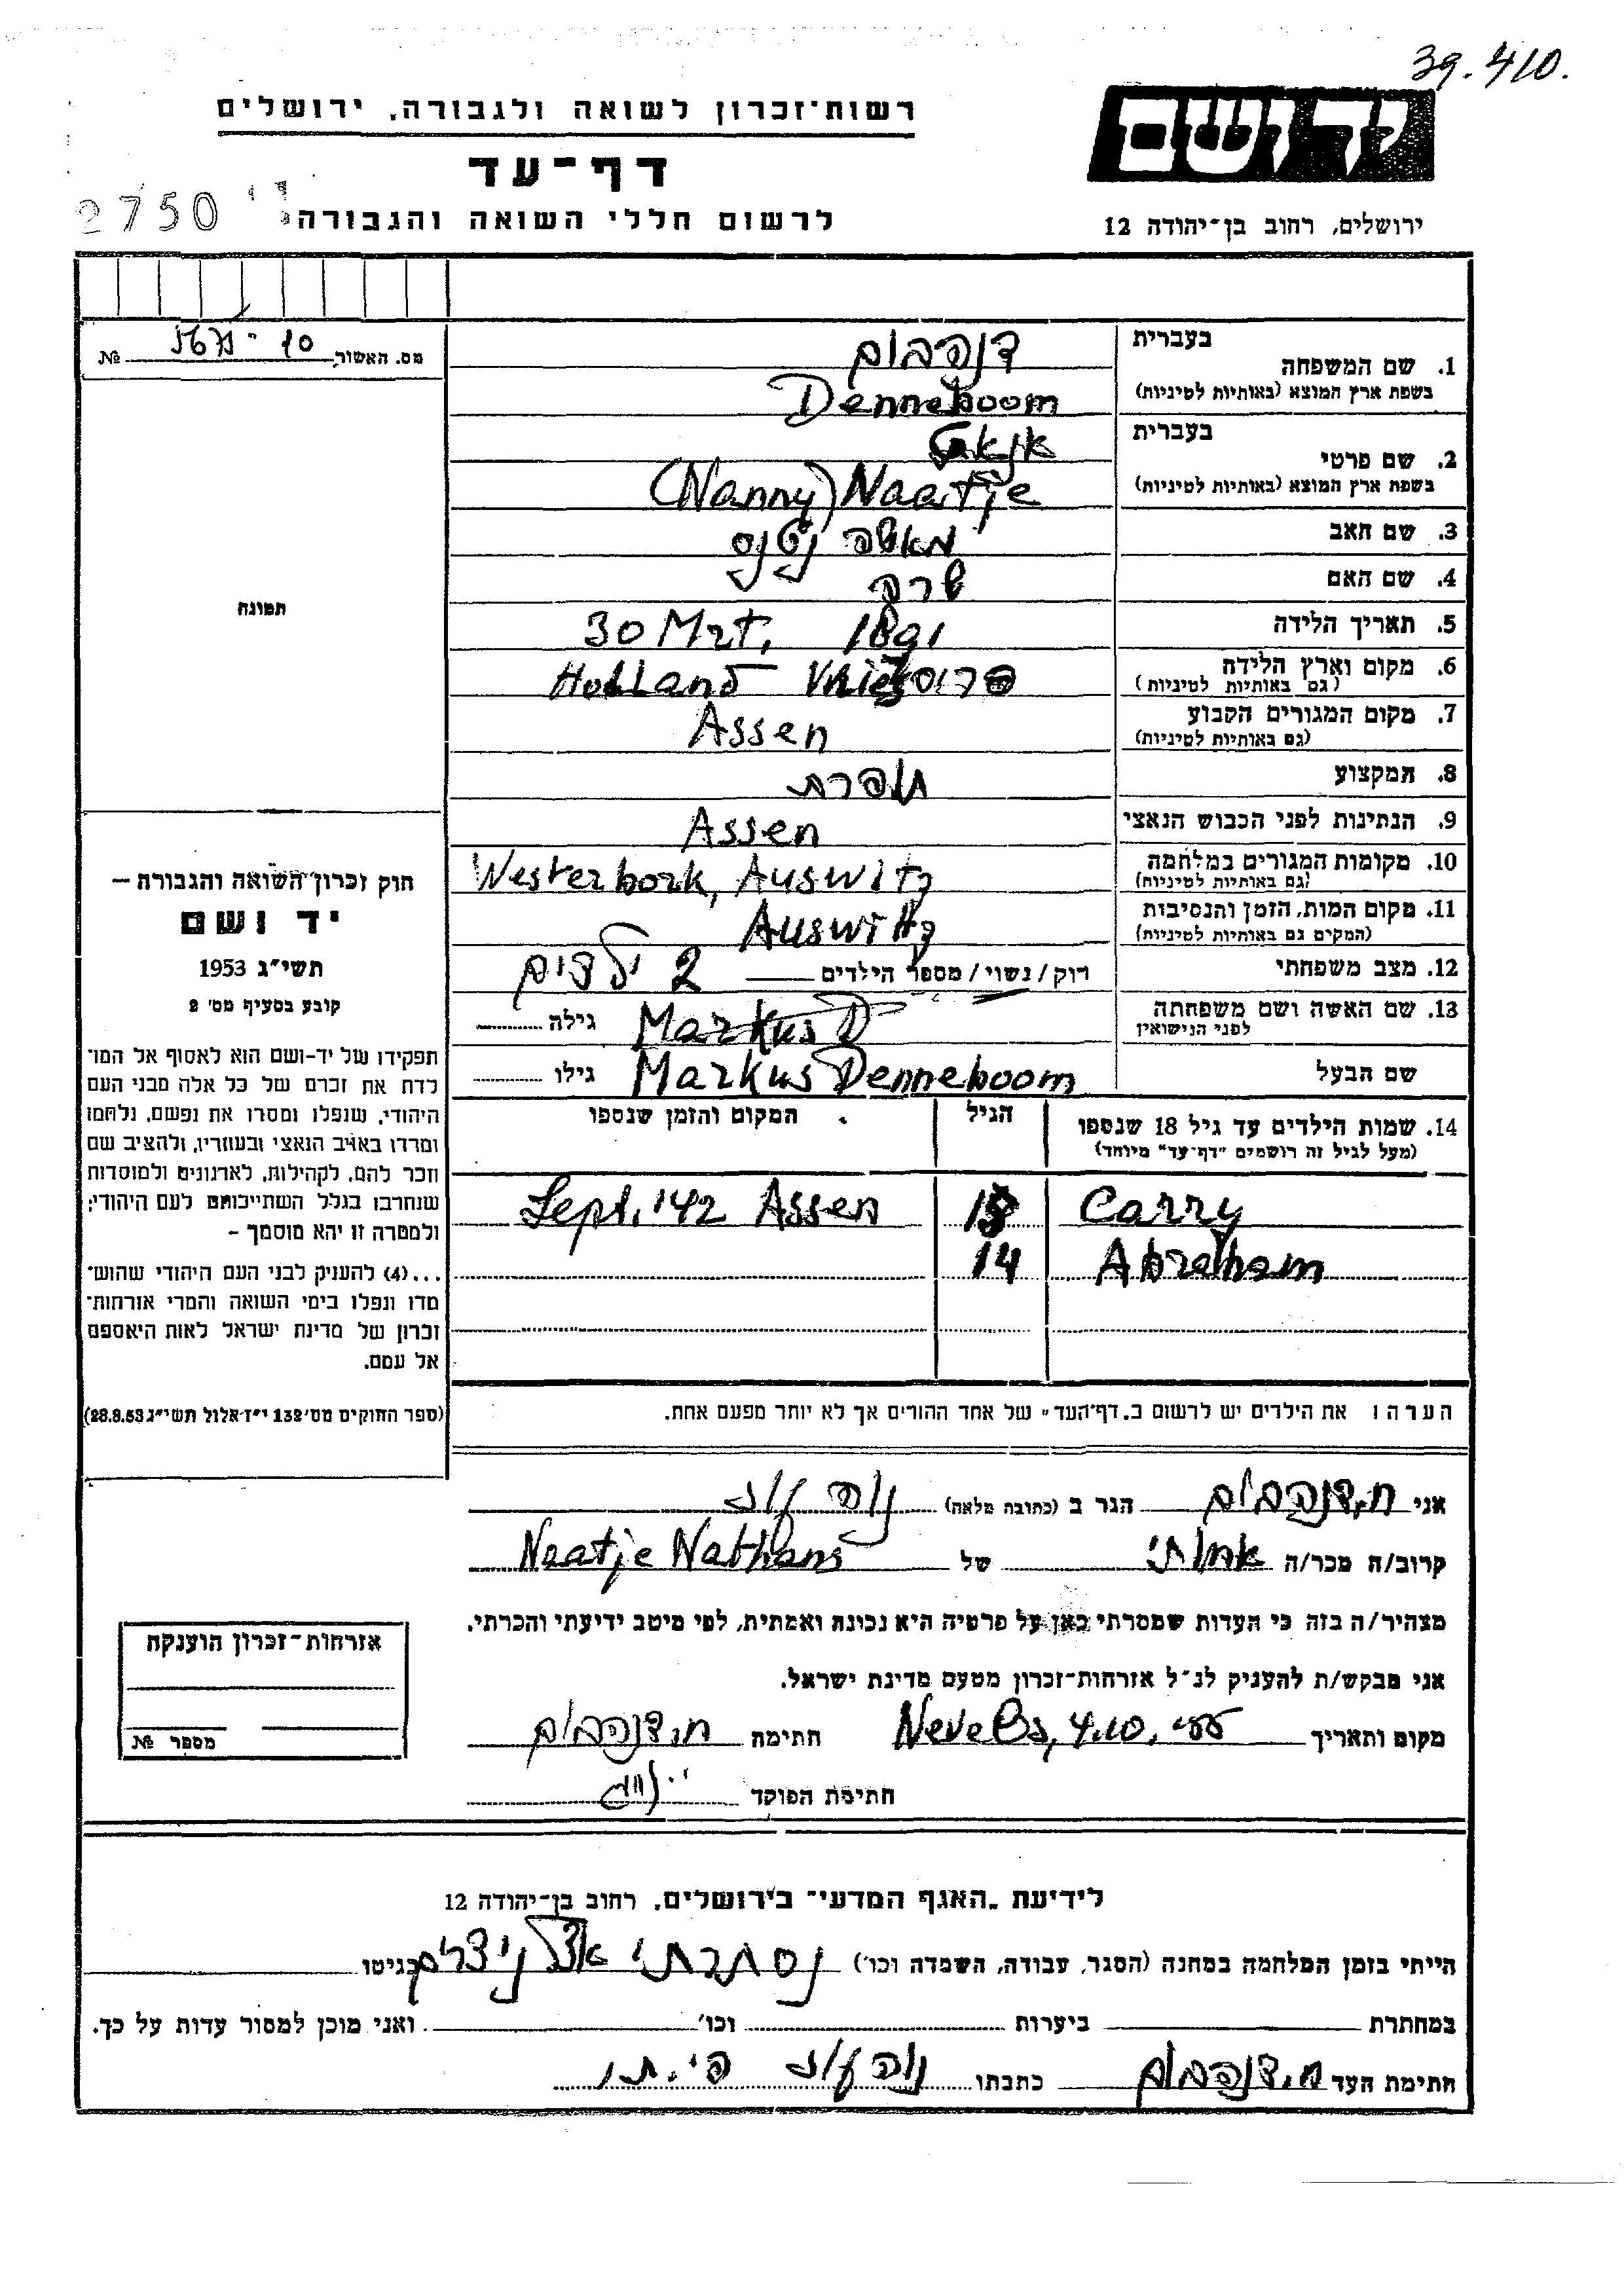 39.410.
רשות־זכרון לשואה ולגבורה, ירושלים
יד ושם
דף־עד
לרשום חללי השואה והגבורה
2750
ירושלים, רחוב בן־יהודה 12
מס. האשור № 
1. שם המשפחה
בעברית
דנהבום
בשפת ארץ המוצא (באותיות לטיניות) Denneboom
2. שם פרטי
בעברית
בשפת ארץ המוצא (באותיות לטיניות) (Nanny) Naatje
3. שם האב משה
4. שם האם שרה
5. תאריך הלידה 30 Mrt. 1891
6. מקום וארץ הלידה
(גם באותיות לטיניות) Holland
7. מקום המגורים הקבוע
(גם באותיות לטיניות) Assen
8. המקצוע תופרת
9. הנתינות לפני הכבוש הנאצי Assen
10. מקומות המגורים במלחמה
(גם באותיות לטיניות) Westerbork, Auswitz
11. מקום המות, הזמן והנסיבות
(המקום גם באותיות לטיניות) Auswitz
12. מצב משפחתי רוק/נשוי/מספר הילדים 2 ילדים
13. שם האשה ושם משפחתה
לפני הנישואין Markus D גילה
שם הבעל Markus Denneboom גילו
14. שמות הילדים עד גיל 18 שנספו
(מעל לגיל זה רושמים "דף־עד" מיוחד)
הגיל
המקום והזמן שנספו
Carry 18 Sept. '42 Assen
Abraham 14
הערה: את הילדים יש לרשום ב"דף־העד" של אחד ההורים אך לא יותר מפעם אחת.
תמונה
חוק זכרון השואה והגבורה –
יד ושם
תשי"ג 1953
קובע בסעיף מס' 2
תפקידו של יד-ושם הוא לאסוף אל המו־
לדת את זכרם של כל אלה מבני העם
היהודי, שנפלו ומסרו את נפשם, נלחמו
ומרדו באויב הנאצי ובעוזריו, ולהציב שם
וזכר להם, לקהילות, לארגונים ולמוסדות
שנחרבו בגלל השתייכותם לעם היהודי;
ולמטרה זו יהא מוסמך –
...(4) להעניק לבני העם היהודי שהוש־
מדו ונפלו בימי השואה והמרי אזרחות־
זכרון של מדינת ישראל לאות היאספם
אל עמם.
(ספר החוקים מס' 132 י"ז אלול תשי"ג 28.8.53)
אני ח. דנהבום הגר ב (כתובת מלאה) נוה עוז
קרוב/ה מכר/ה אחותי של Naatje Nathans
מצהיר/ה בזה כי העדות שמסרתי כאן על פרטיה היא נכונה ואמתית, לפי מיטב ידיעתי והכרתי.
אני מבקש/ת להעניק לנ"ל אזרחות־זכרון מטעם מדינת ישראל.
מקום ותאריך חתימה ח. דנהבום
חתימת הפוקד
אזרחות־זכרון הוענקה
מספר №
לידיעת "האגף המדעי" בירושלים, רחוב בן־יהודה 12
הייתי בזמן המלחמה במחנה (הסגר, עבודה, השמדה וכו') נסתרתי אצל נוצרים בגיטו
במחתרת ביערות וכו' ואני מוכן למסור עדות על כך.
חתימת העד ח. דנהבום כתבתו נוה עוז פ.ת.